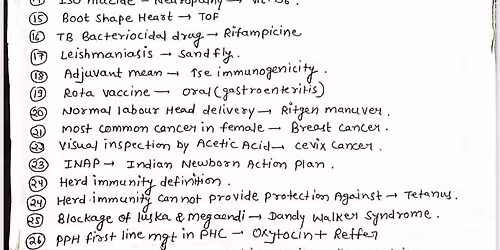 INO Niacide → Neuropathy → Vit. B6.
(15) Boot Shape Heart → TOF
(16) TB Bacteriocidal drug → Rifampicine
(17) Leishmaniasis → Sandfly.
(18) Adjuvant mean → ↑se immunogenicity.
(19) Rota vaccine → oral (gastroenteritis)
(20) Normal labour Head delivery → Ritgen manuver.
(21) most common cancer in female → Breast cancer.
(22) Visual inspection by Acetic Acid → cevix cancer.
(23) INAP → Indian Newborn Action Plan.
(24) Herd immunity definition.
(24) Herd immunity cannot provide protection Against → Tetanus.
(25) Blockage of luska & megaendi → Dandy Walker Syndrome.
(26) PPH first line mgt in PHC → Oxytocin + Reffer